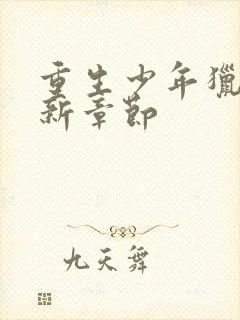 重生少年獵
新章節
九天舞